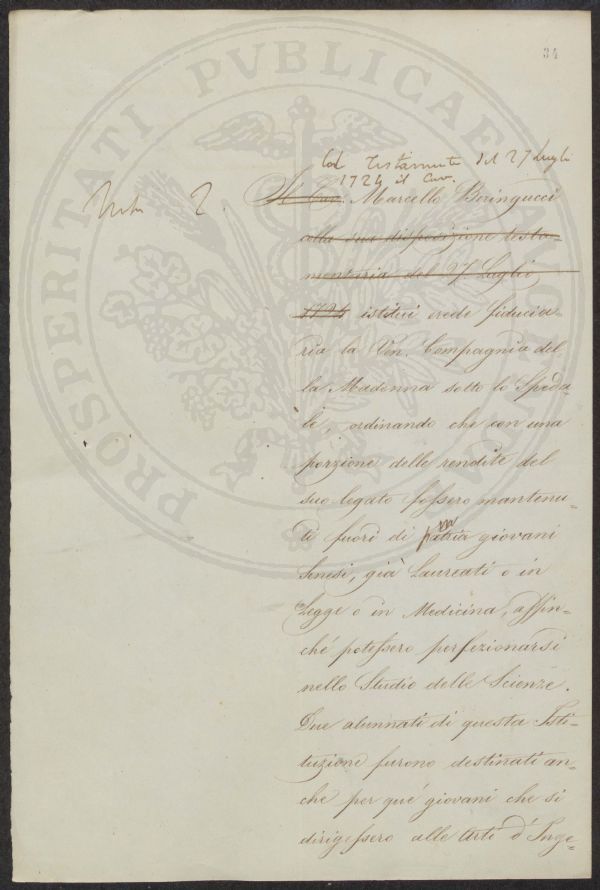 34
PROSPERITATI PVBLICAE
Col Testamento del 27 Luglio
1724 il Cav.
Nota 2.
Il Cav. Marcello Biringucci
colla sua disposizione testa-
mentaria del 27 Luglio
1724 istituì erede fiducia-
ria la Ven. Compagnia del-
la Madonna sotto lo Speda-
le, ordinando che con una
porzione delle rendite del
suo legato fossero mantenu-
ti fuori di patria giovani
Senesi, già Laureati o in
Legge o in Medicina, affin-
ché potessero perfezionarsi
nello Studio delle Scienze.
Due alunnati di questa Isti-
tuzione furono destinati an-
che per qué giovani che si
dirigessero alle Arti d'Inge-